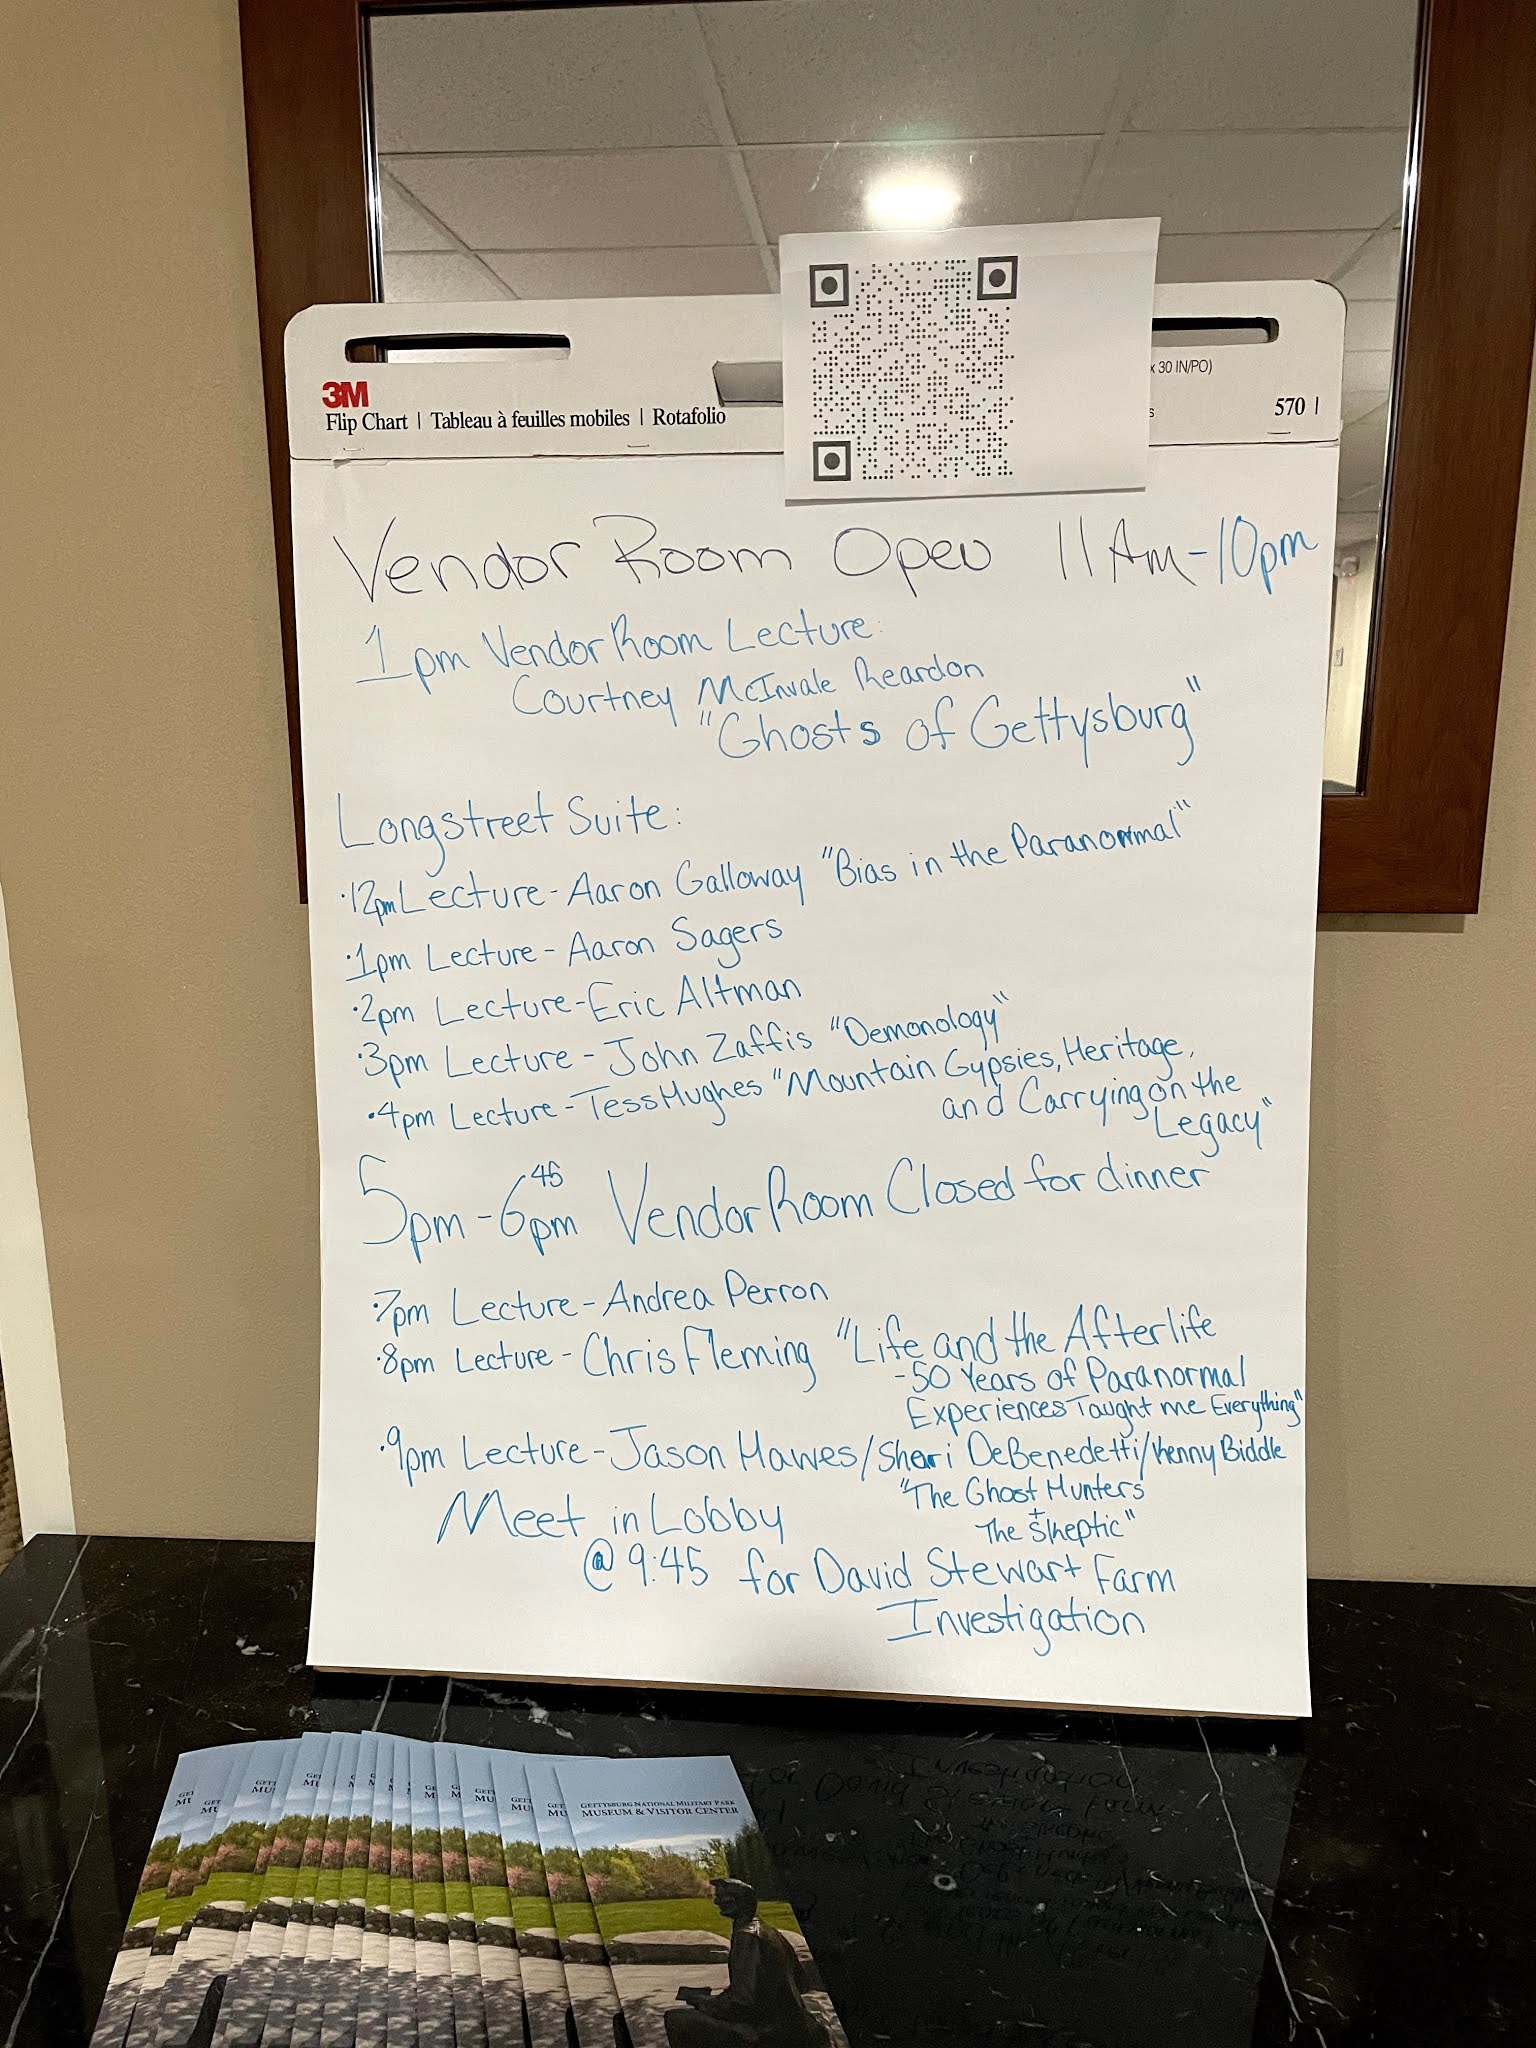 x 30 IN/PO)
3M
570
Flip Chart | Tableau à feuilles mobiles | Rotafolio
Vendor Room Open 11Am-10pm
1pm Vendor Room Lecture:
Courtney McInvale Reardon
"Ghosts of Gettysburg"
Longstreet Suite:
·12pm Lecture - Aaron Galloway "Bias in the Paranormal"
·1pm Lecture - Aaron Sagers
·2pm Lecture - Eric Altman
·3pm Lecture - John Zaffis "Demonology"
·4pm Lecture - Tess Hughes "Mountain Gypsies, Heritage,
and Carrying on the
Legacy"
5pm - 6 45 pm Vendor Room Closed for dinner
·7pm Lecture - Andrea Perron
·8pm Lecture - Chris Fleming "Life and the Afterlife
-50 Years of Paranormal
Experiences Taught me Everything"
·9pm Lecture - Jason Hawes/Shari DeBenedetti/Kenny Biddle
"The Ghost Hunters
+
The Skeptic"
Meet in Lobby
@ 9:45 for David Stewart Farm
Investigation
GETTYSBURG NATIONAL MILITARY PARK
MUSEUM & VISITOR CENTER